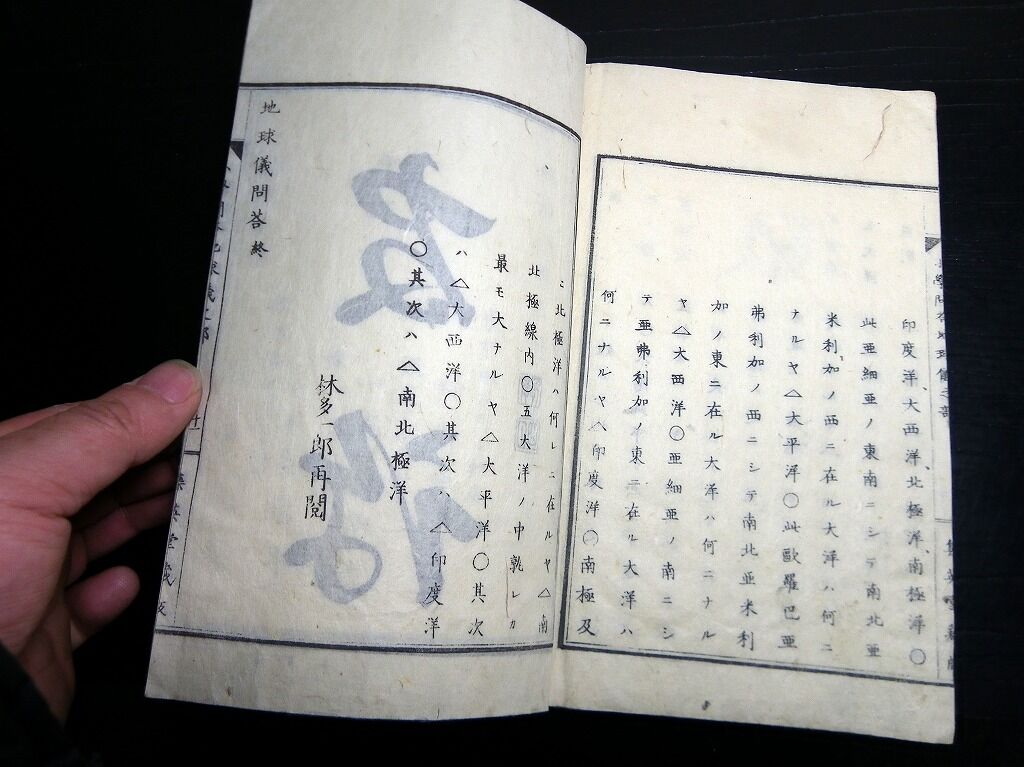 印度洋、大西洋、北極洋、南極洋〇
此亜細亜ノ東南ニシテ南北亜
米利加ノ西ニ在ル大洋ハ何ニ
ナルヤ△大平洋〇此歐羅巴亜
弗利加ノ西ニシテ南北亜米利
加ノ東ニ在ル大洋ハ何ニナル
ヤ△大西洋〇亜細亜ノ南ニシ
テ亜弗利加ノ東ニ在ル大洋ハ
何ニナルヤ△印度洋〇南極及
ヒ北極洋ハ何レニ在ルヤ△南
北極線内〇五大洋ノ中孰レカ
最モ大ナルヤ△大平洋〇其次
ハ△大西洋〇其次ハ△印度洋
〇其次ハ△南北極洋
林多一郎再閲
地球儀問答終